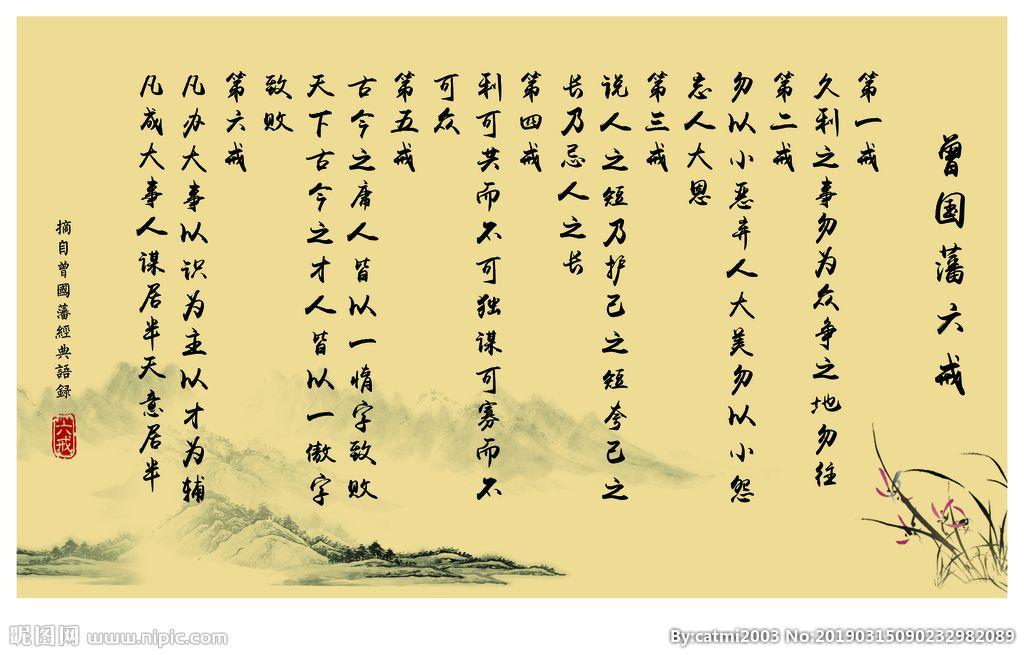 曾国藩六戒
第一戒
久利之事勿为众争之地勿往
第二戒
勿以小恶弃人大美勿以小怨
忘人大恩
第三戒
说人之短乃护己之短夸己之
长乃忌人之长
第四戒
利可共而不可独谋可寡而不
可众
第五戒
古今之庸人皆以一惰字致败
天下古今之才人皆以一傲字
致败
第六戒
凡办大事以识为主以才为辅
凡成大事人谋居半天意居半
摘自曾國藩經典語録
六戒
昵图网 www.nipic.com
By:catmi2003 No:20190315090232982089